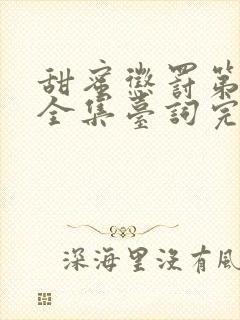 甜蜜懲罰第
全集臺詞完
深海里沒有風